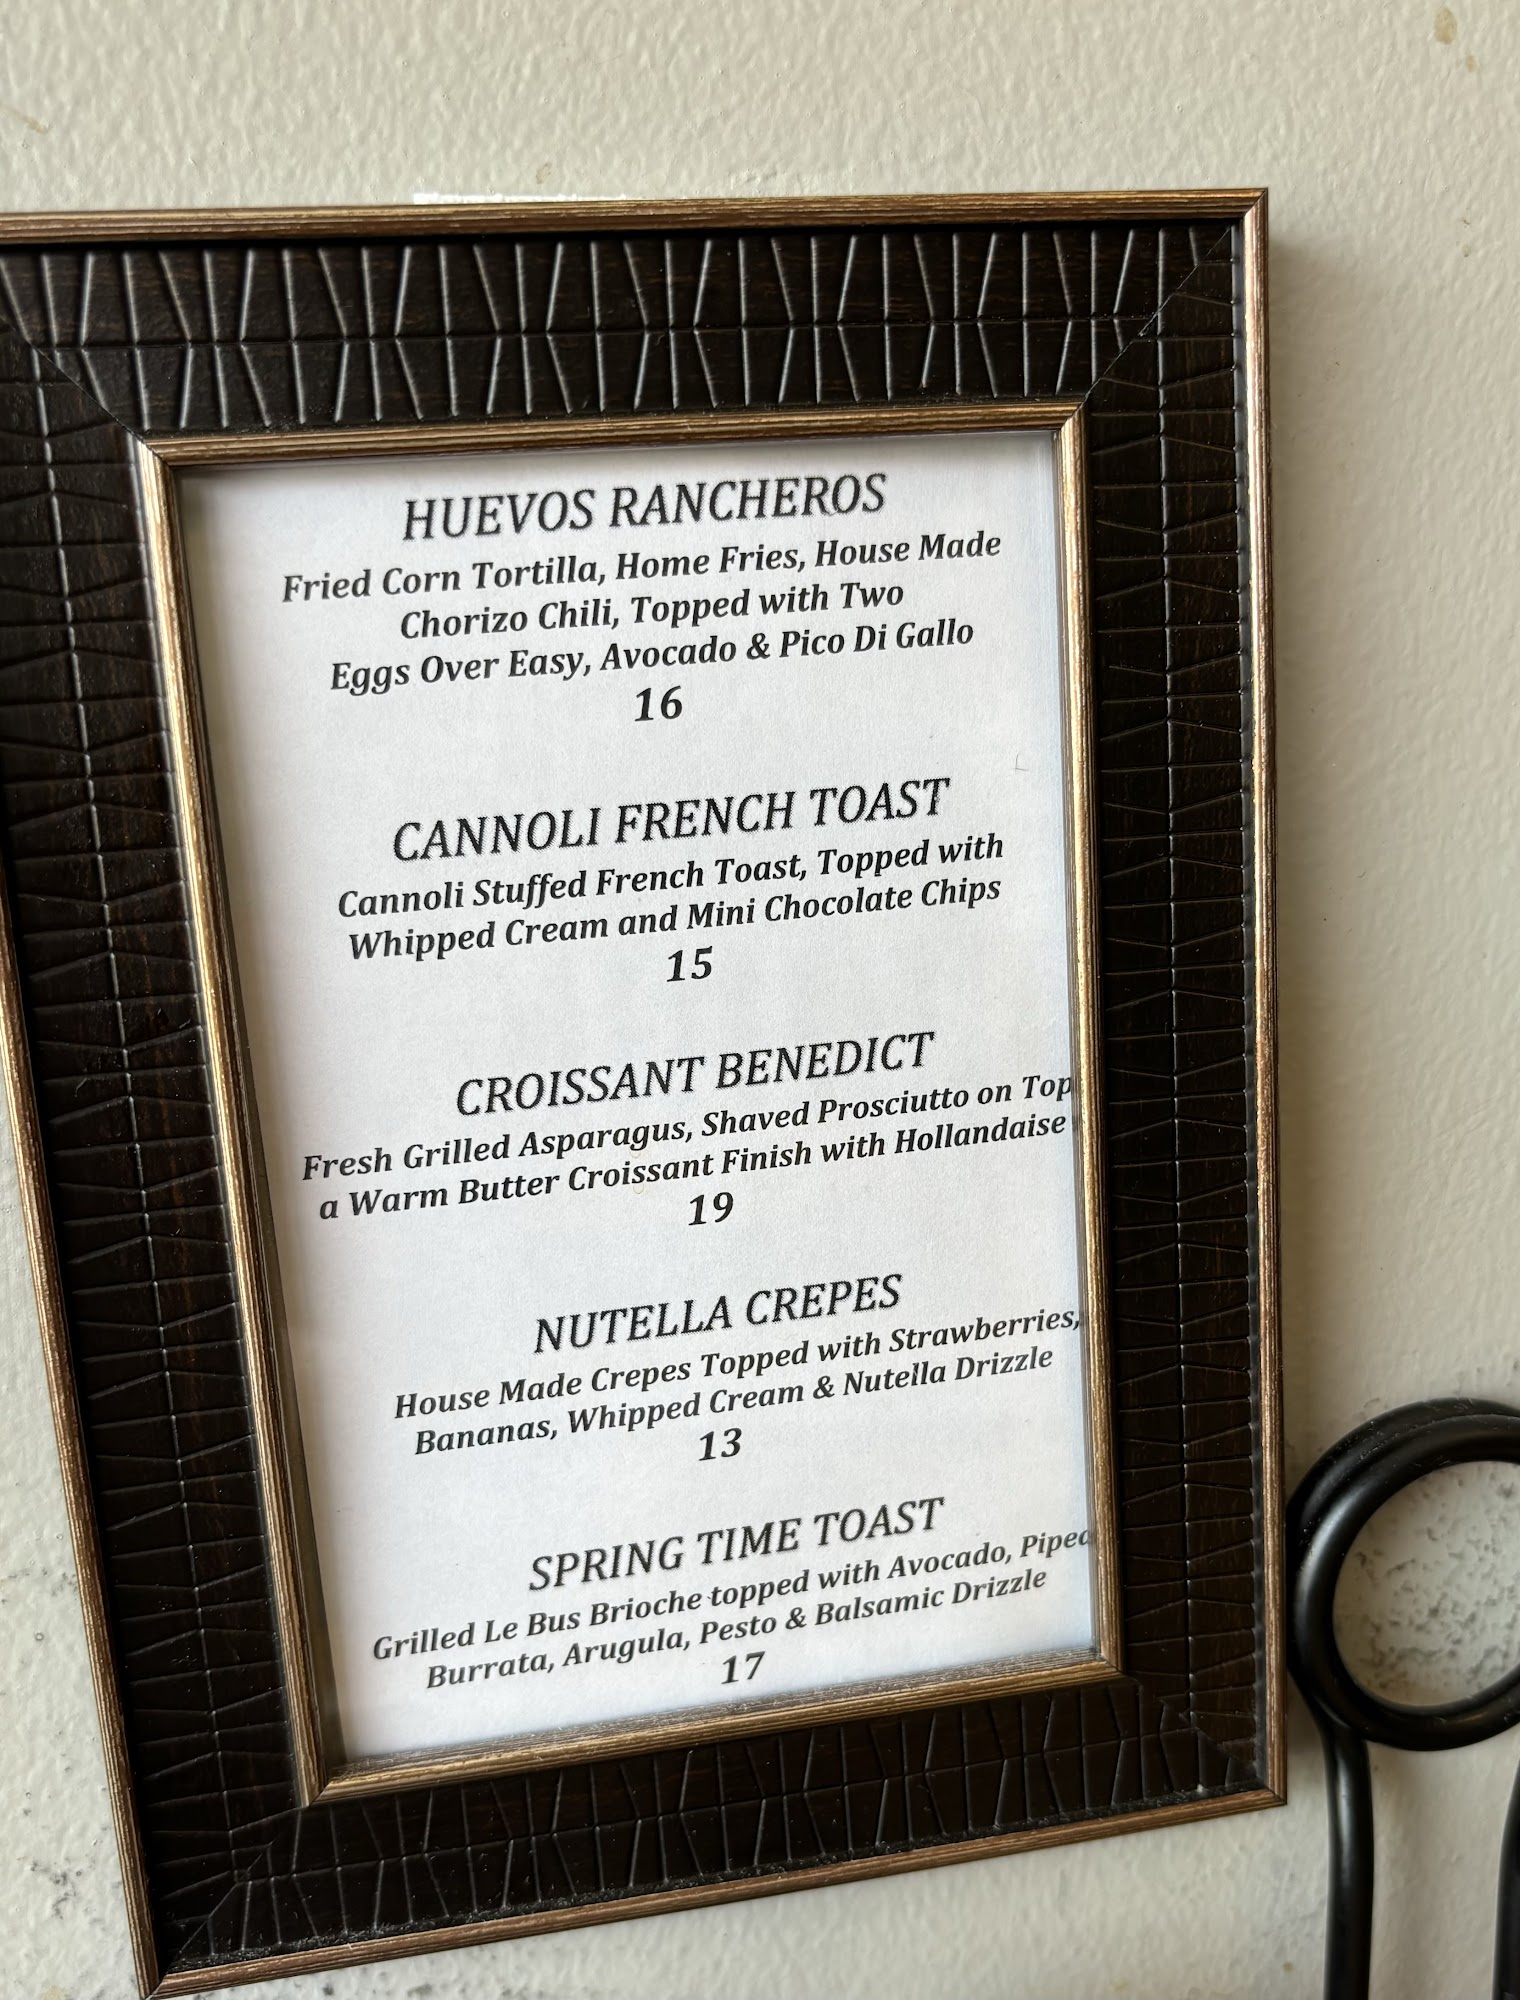 HUEVOS RANCHEROS
Fried Corn Tortilla, Home Fries, House Made
Chorizo Chili, Topped with Two
Eggs Over Easy, Avocado & Pico Di Gallo
16
CANNOLI FRENCH TOAST
Cannoli Stuffed French Toast, Topped with
Whipped Cream and Mini Chocolate Chips
15
CROISSANT BENEDICT
Fresh Grilled Asparagus, Shaved Prosciutto on Top
a Warm Butter Croissant Finish with Hollandaise
19
NUTELLA CREPES
House Made Crepes Topped with Strawberries,
Bananas, Whipped Cream & Nutella Drizzle
13
SPRING TIME TOAST
Grilled Le Bus Brioche topped with Avocado, Piped
Burrata, Arugula, Pesto & Balsamic Drizzle
17